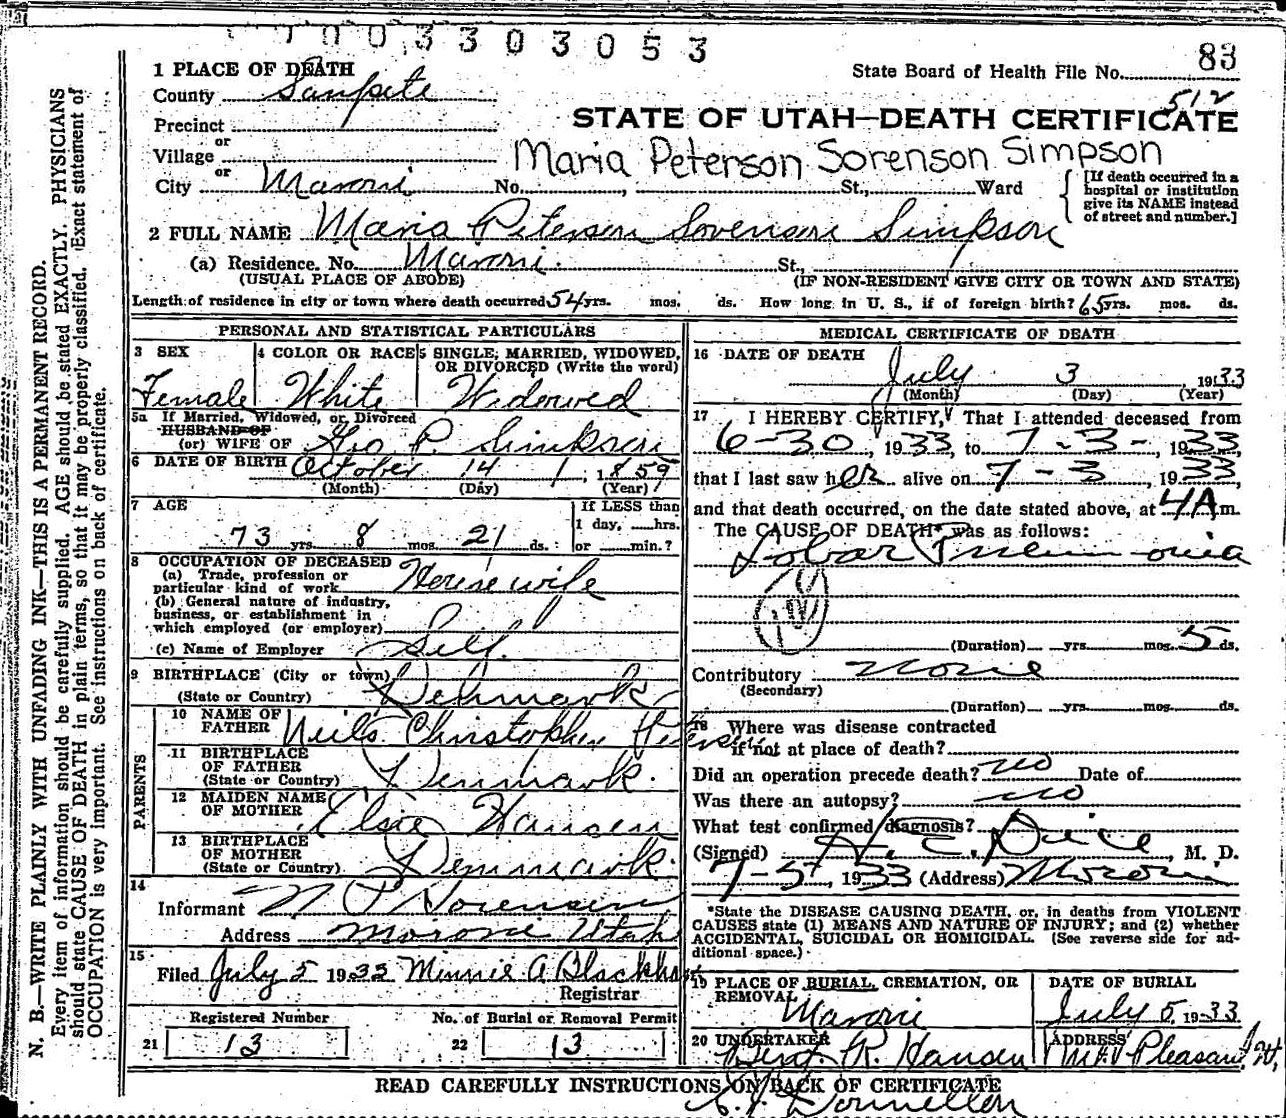 7003303053
83
State Board of Health File No.
512
1 PLACE OF DEATH
County Sanpete
STATE OF UTAH—DEATH CERTIFICATE
Precinct
or
Village
Maria Peterson Sorenson Simpson
or
City Moroni No. , St., Ward
[If death occurred in a hospital or institution give its NAME instead of street and number.]
2 FULL NAME Maria Peterson Sorenson Simpson
(a) Residence. No. Moroni. St.,
(USUAL PLACE OF ABODE) (IF NON-RESIDENT GIVE CITY OR TOWN AND STATE)
Length of residence in city or town where death occurred 54 yrs. mos. ds. How long in U. S., if of foreign birth? 65 yrs. mos. ds.
PERSONAL AND STATISTICAL PARTICULARS
3 SEX
Female
4 COLOR OR RACE
White
5 SINGLE, MARRIED, WIDOWED,
OR DIVORCED (Write the word)
Widowed
5a If Married, Widowed, or Divorced
HUSBAND OF
(or) WIFE OF Geo P. Simpson
6 DATE OF BIRTH October 14, 1859
(Month) (Day) (Year)
7 AGE
73 yrs. 8 mos. 21 ds.
If LESS than
1 day, hrs.
or min.?
8 OCCUPATION OF DECEASED
(a) Trade, profession or
particular kind of work Housewife
(b) General nature of industry,
business, or establishment in
which employed (or employer)
(c) Name of Employer Self.
9 BIRTHPLACE (City or town)
(State or Country) Denmark
PARENTS
10 NAME OF
FATHER Neils Christopher Peterson
11 BIRTHPLACE
OF FATHER
(State or Country) Denmark.
12 MAIDEN NAME
OF MOTHER Elsie Hansen
13 BIRTHPLACE
OF MOTHER
(State or Country) Denmark.
14
Informant N P Sorensen
Address Moroni Utah
15
Filed July 5 1933 Minnie A Blackham
Registrar
Registered Number
21 13
No. of Burial or Removal Permit
22 13
MEDICAL CERTIFICATE OF DEATH
16 DATE OF DEATH
July 3, 1933
(Month) (Day) (Year)
17 I HEREBY CERTIFY, That I attended deceased from
6-30, 1933, to 7-3-, 1933,
that I last saw her alive on 7-3, 1933,
and that death occurred, on the date stated above, at 4 A.m.
The CAUSE OF DEATH* was as follows:
Lobar Pneumonia
108
(Duration) yrs. mos. 5 ds.
Contributory none
(Secondary)
(Duration) yrs. mos. ds.
18 Where was disease contracted
if not at place of death?
Did an operation precede death? no Date of
Was there an autopsy? no
What test confirmed diagnosis?
(Signed) H. C. Dice, M. D.
7-5, 1933 (Address) Moroni
*State the DISEASE CAUSING DEATH, or, in deaths from VIOLENT
CAUSES state (1) MEANS AND NATURE OF INJURY; and (2) whether
ACCIDENTAL, SUICIDAL OR HOMICIDAL. (See reverse side for ad-
ditional space.)
19 PLACE OF BURIAL, CREMATION, OR
REMOVAL
Moroni
DATE OF BURIAL
July 5, 1933
20 UNDERTAKER
R. Hansen
ADDRESS
Mt Pleasant, Ut,
READ CAREFULLY INSTRUCTIONS ON BACK OF CERTIFICATE
N. B.—WRITE PLAINLY WITH UNFADING INK—THIS IS A PERMANENT RECORD.
Every item of information should be carefully supplied. AGE should be stated EXACTLY. PHYSICIANS
should state CAUSE OF DEATH in plain terms, so that it may be properly classified. Exact statement of
OCCUPATION is very important. See instructions on back of certificate.